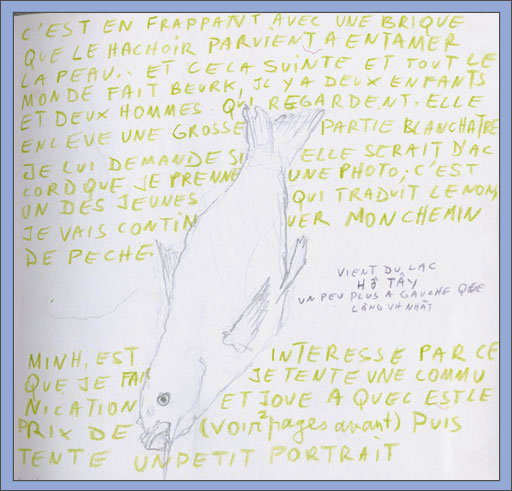 C'EST EN FRAPPANT AVEC UNE BRIQUE
QUE LE HACHOIR PARVIENT A ENTAMER
LA PEAU.. ET CELA SUINTE ET TOUT LE
MONDE FAIT BEURK, IL Y A DEUX ENFANTS
ET DEUX HOMMES. QUI REGARDENT. ELLE
ENLEVE UNE GROSSE PARTIE BLANCHATRE
JE LUI DEMANDE SI ELLE SERAIT D'AC
CORD QUE JE PRENNE UNE PHOTO, C'EST
UN DES JEUNES QUI TRADUIT LE NON,
JE VAIS CONTIN UER MON CHEMIN
DE PECHE.
VIENT DU LAC
HỒ TÂY
UN PEU PLUS A GAUCHE QUE
LĂNG VH NHẬT
MINH, EST INTERESSE PAR CE
QUE JE FAI JE TENTE UNE COMMU
NICATION ET JOUE A QUEL EST LE
PRIX DE (voir 2 pages avant) PUIS
TENTE UN PETIT PORTRAIT